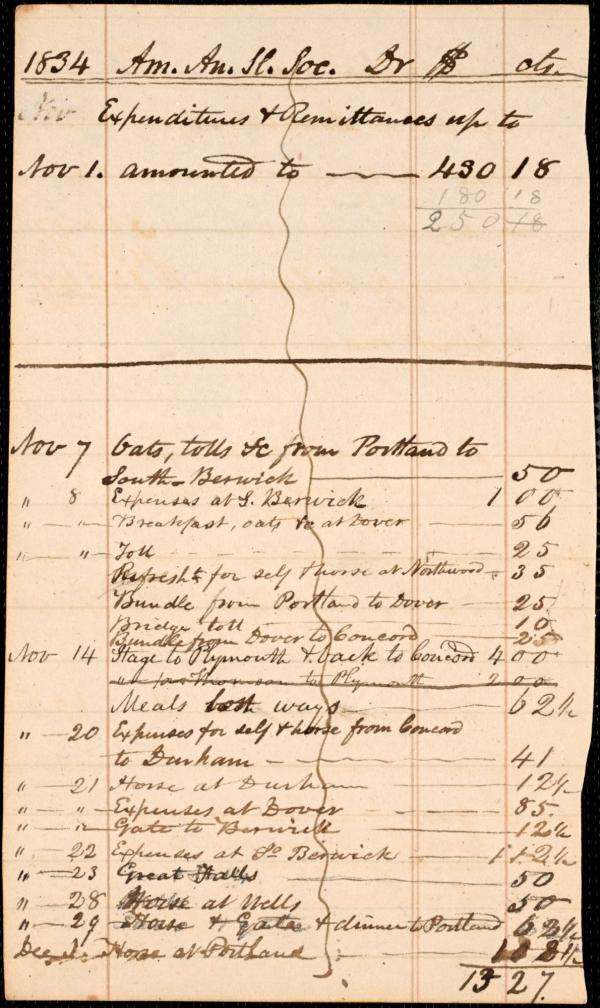 1834 Am. An. Sl. Soc. Dr $ cts.
Nov Expenditures & Remittances up to
Nov 1. amounted to 430 18
180 18
250 18
Nov 7 Oats, tolls &c from Portland to
South-Berwick 50
" 8 Expenses at S. Berwick 1 00
" " Breakfast, oats &c at Dover 56
" " Toll 25
Refresht for self & horse at Northwood 35
Bundle from Portland to Dover 25
Bridge toll 10
Bundle from Dover to Concord 25
Nov 14 Stage to Plymouth & back to Concord 4 00
" for Thomson to Plymouth 2 00
Meals both ways 62½
" 20 Expenses for self & horse from Concord
to Durham 41
" 21 Horse at Durham 12½
" " Expenses at Dover 85
" " Gate to Berwick 12½
" 22 Expenses at So Berwick 1 12½
" 23 Great Falls 50
" 28 Horse at Wells 50
" 29 Horse & Gate & dinner to Portland 62½
Dec 1. Horse at Portland
13 27